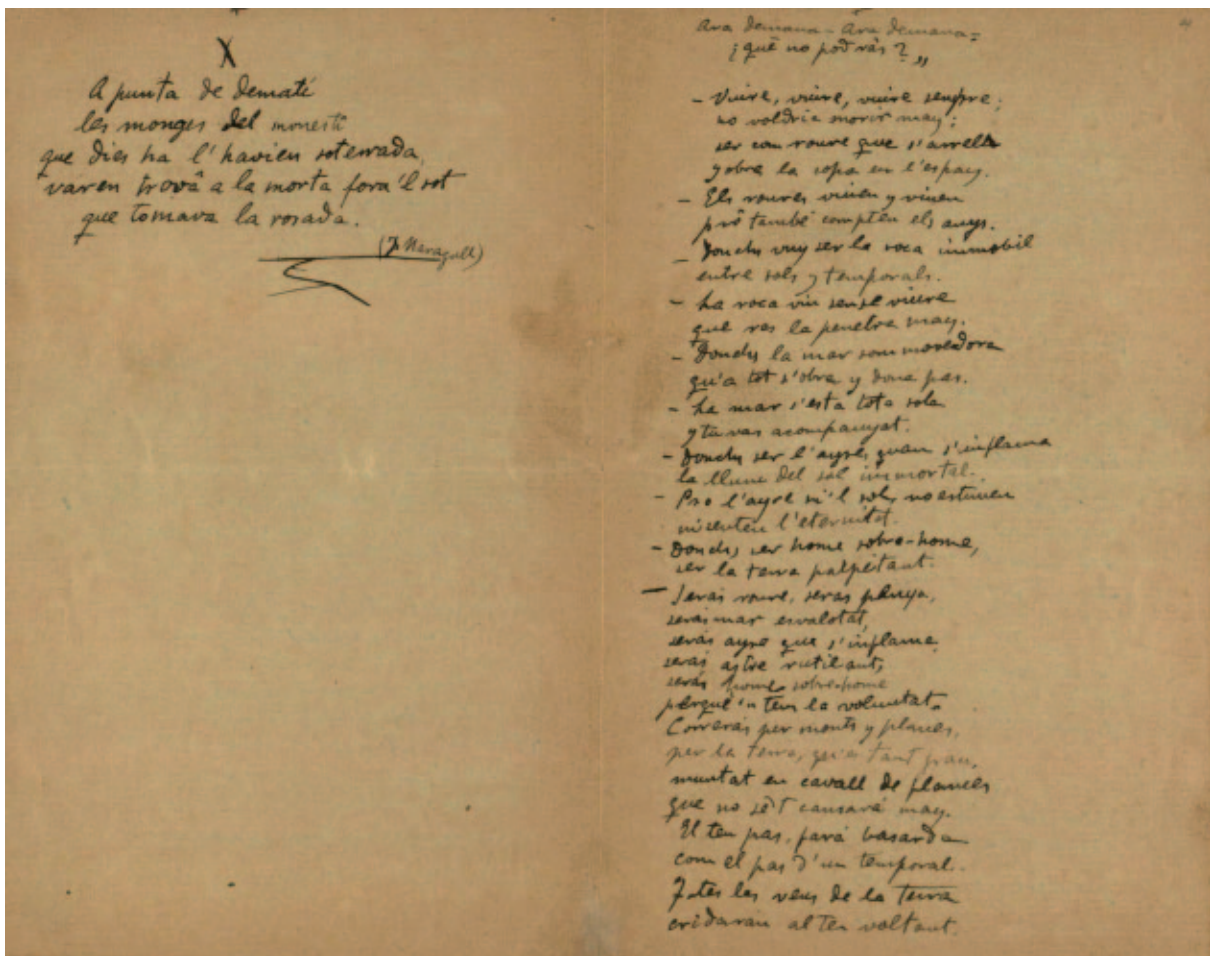 X
A punta de dematí
les monges del monestí
que dies ha l'havien soterrada,
varen trovâ a la morta fora 'l sot
que tomava la rosada.
(J. Maragall)
4
Ara demana - Ara demana =
¿què no podràs?"
- Viure, viure, viure sempre;
no voldria morir may;
ser com roure que s'arrela
y obra la copa en l'espay.
- Els roures viuen y viuen
prô també compten els anys.
- Donchs vuy ser la roca immobil
entre sols y temporals.
- La roca viu sense viure
que res la penetra may.
- Donchs la mar sommovedora
qu'a tot s'obra y dona pas.
- La mar s'está tota sola
y tu vas acompanyat.
- Donchs ser l'ayre quan s'inflama
la llum del sol immortal.
- Pro l'ayre ni 'l sol, no estimen
ni senten l'eternitat.
- Donchs, ser home sobre-home,
ser la terra palpitant.
- Serás roure, serás penya,
serás mar esvalotat,
serás ayre que s'inflama,
serás astre rutilant,
serás home sobre-home
perqué 'n tens la voluntat.
Correrás per monts y planes,
per la terra, qu'es tant gran,
muntat en cavall de flames
que no se't cansará may.
El teu pas, fará basarda
com el pas d'un temporal.
Totes les veus de la terra
cridaran al teu voltant.